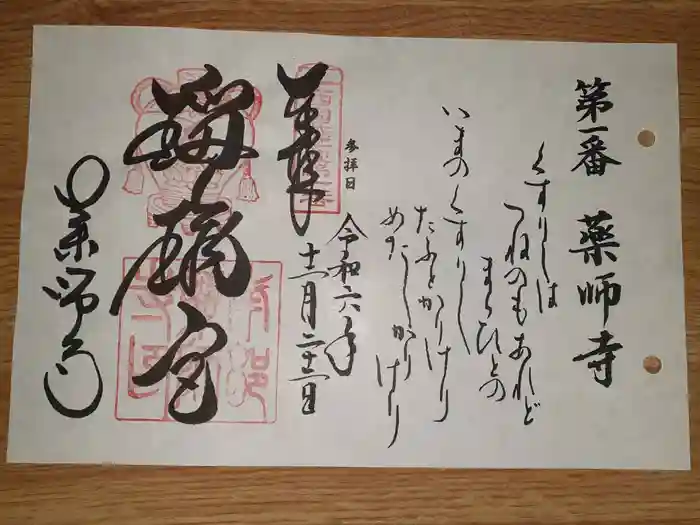 第一番 薬師寺
くすりしは
つねのもあれど
まらひとの
いまのくすりし
たふとかりけり
めだしかりけり
参拝日
令和六年
十二月二十一日
奉拝
瑠璃宮
薬師寺